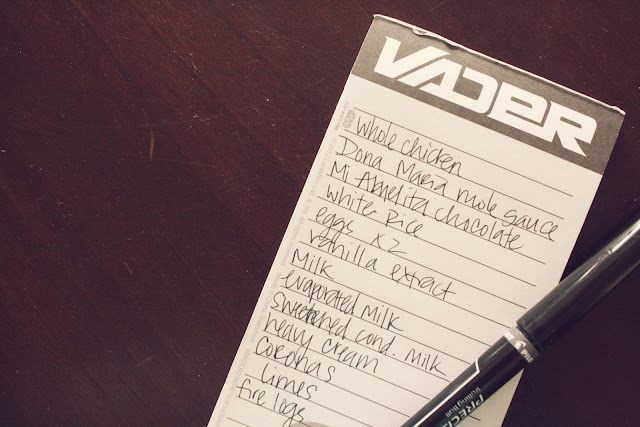 VADER
whole chicken
Dona Maria mole sauce
Mi Abuelita chocolate
white rice
eggs x2
vanilla extract
Milk
evaporated Milk
sweetened cond. milk
heavy cream
coronas
limes
fire logs
PRECIS
Rolling Ball